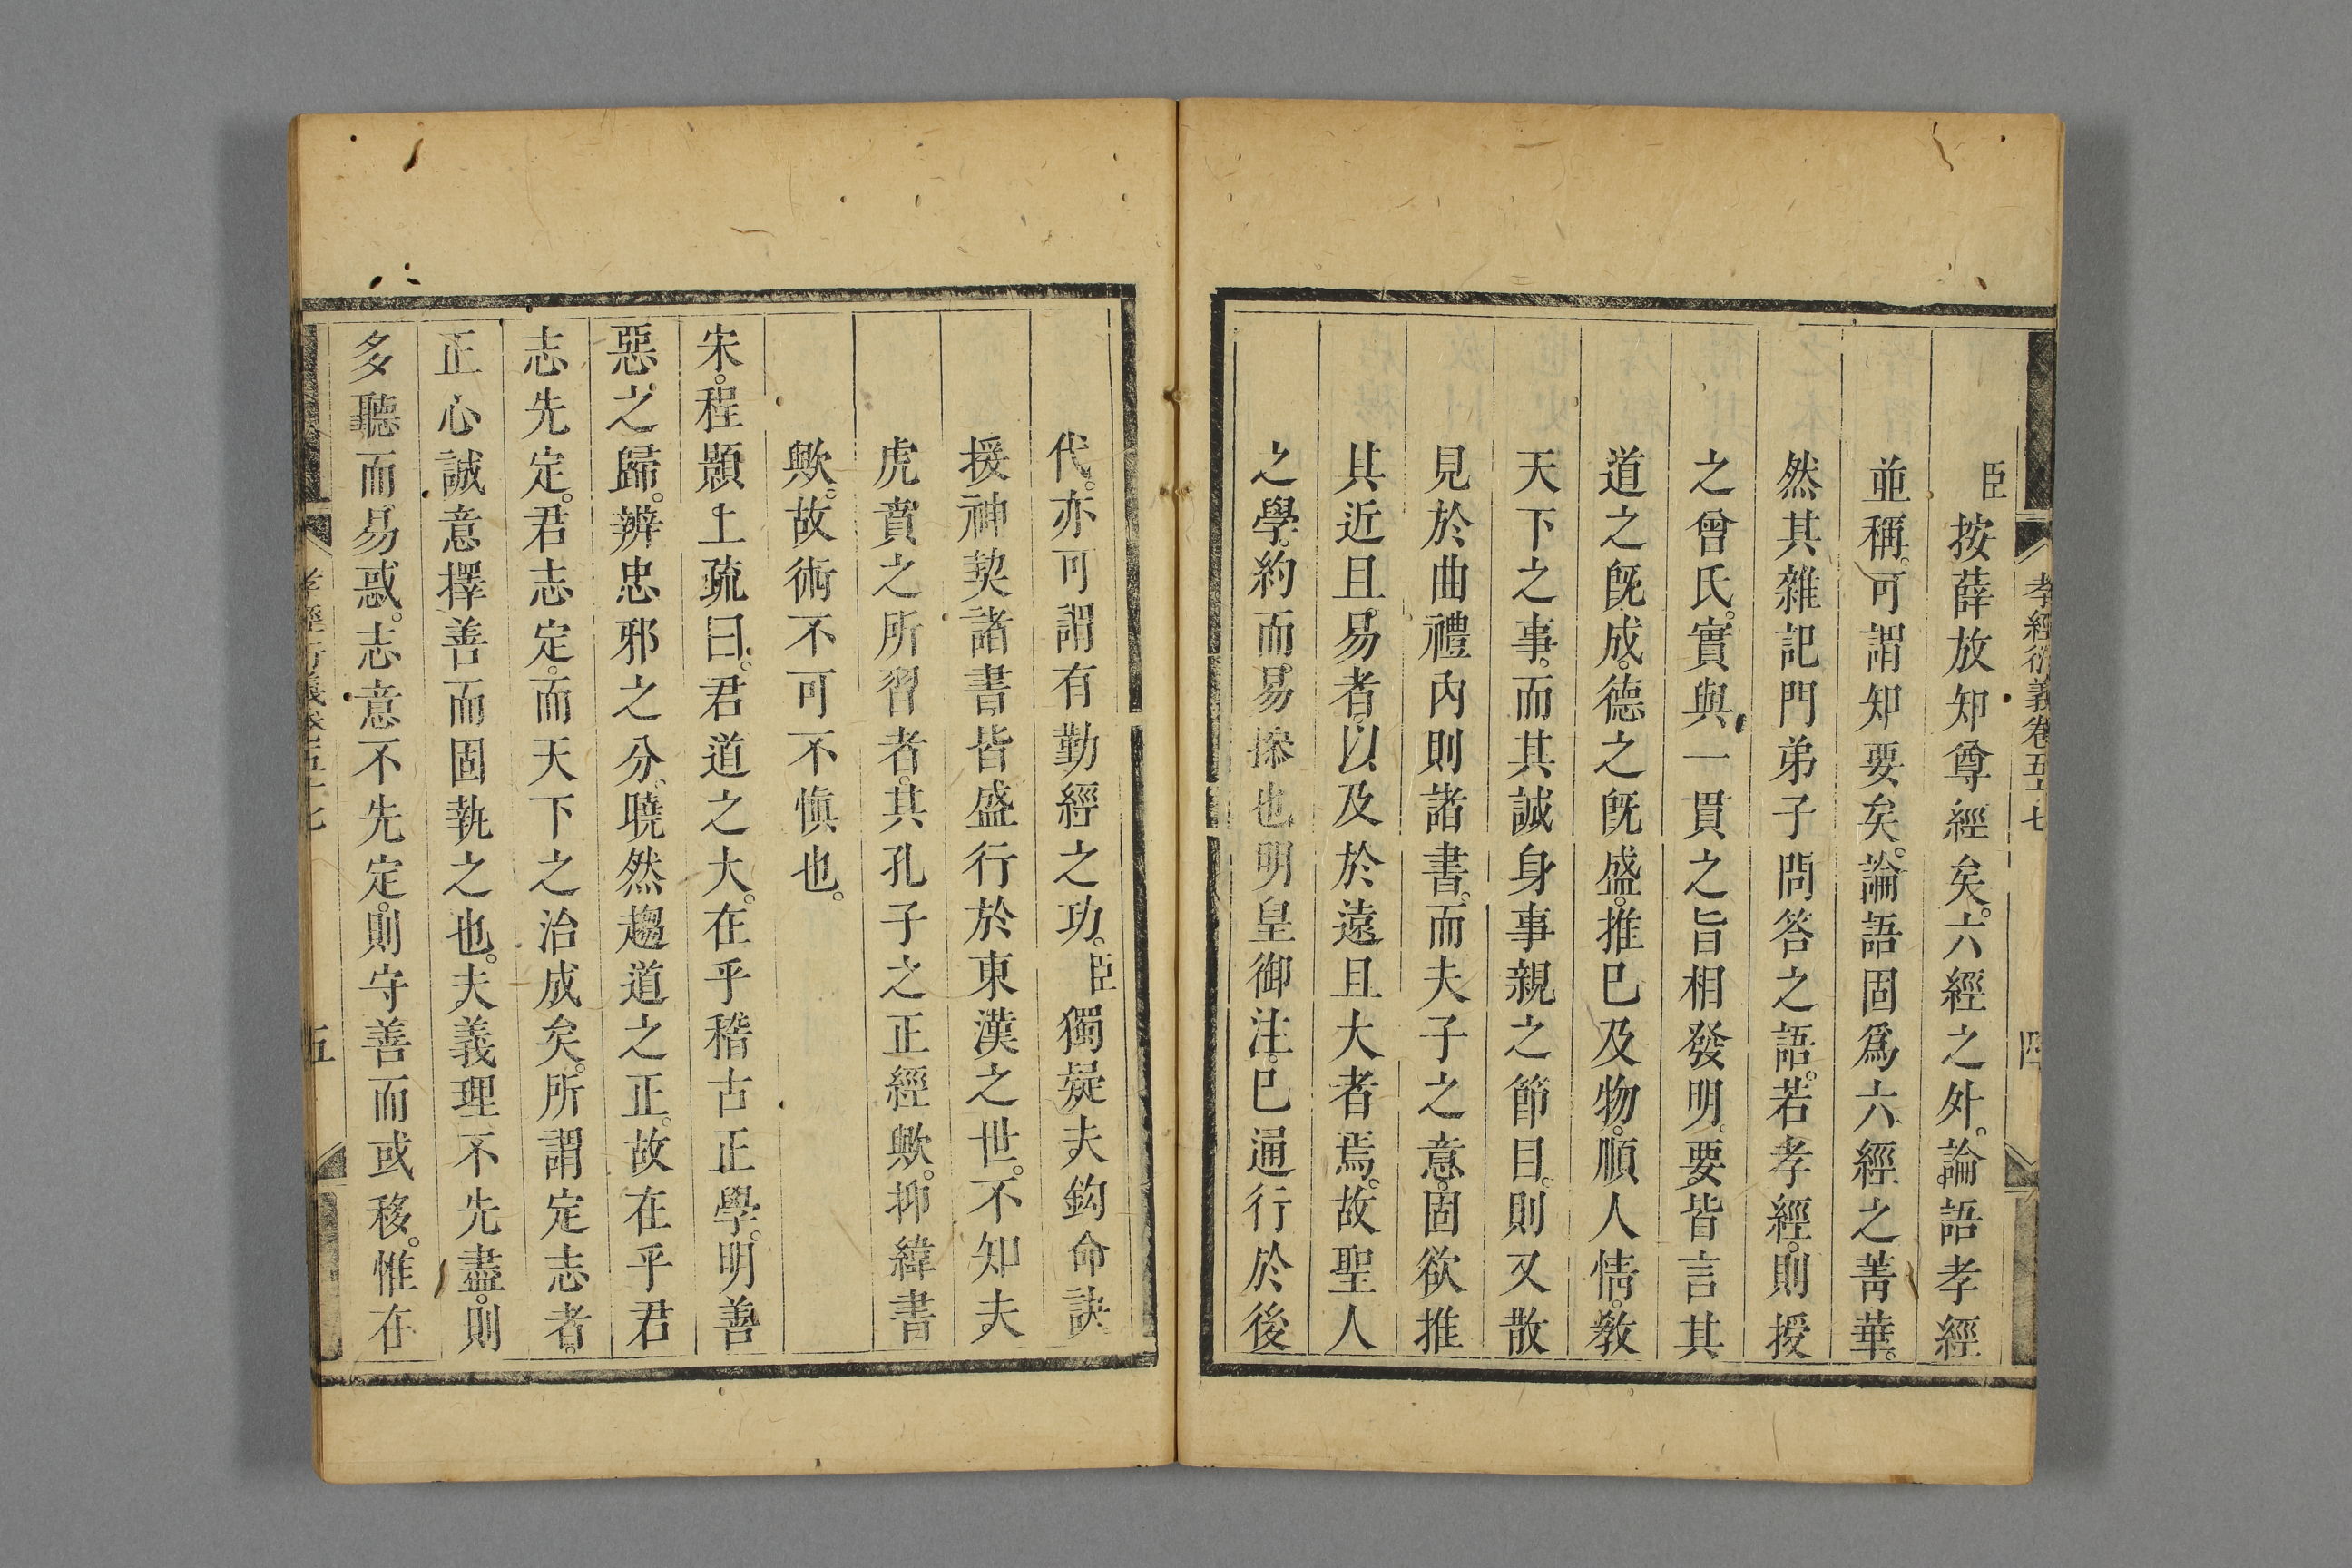 孝經衍義卷五十七
四
臣按薛放知尊經矣。六經之外。論語孝經
並稱。可謂知要矣。論語固爲六經之菁華。
然其雜記門弟子問答之語。若孝經。則授
之曾氏。實與一貫之旨相發明。要皆言其
道之旣成。德之旣盛。推已及物。順人情。敎
天下之事。而其誠身事親之節目。則又散
見於曲禮內則諸書。而夫子之意。固欲推
其近且易者。以及於遠且大者焉。故聖人
之學。約而易操也明皇御注。已通行於後
代。亦可謂有勤經之功。臣獨疑夫鈎命訣
援神契諸書皆盛行於東漢之世。不知夫
虎賁之所習者。其孔子之正經歟。抑緯書
歟。故術不可不愼也。
宋。程顥上疏曰。君道之大。在乎稽古正學。明善
惡之歸。辨忠邪之分。曉然趨道之正。故在乎君
志先定。君志定。而天下之治成矣。所謂定志者。
正心誠意擇善而固執之也。夫義理不先盡。則
多聽而易惑。志意不先定。則守善而或移。惟在
孝經衍義卷五十七
五